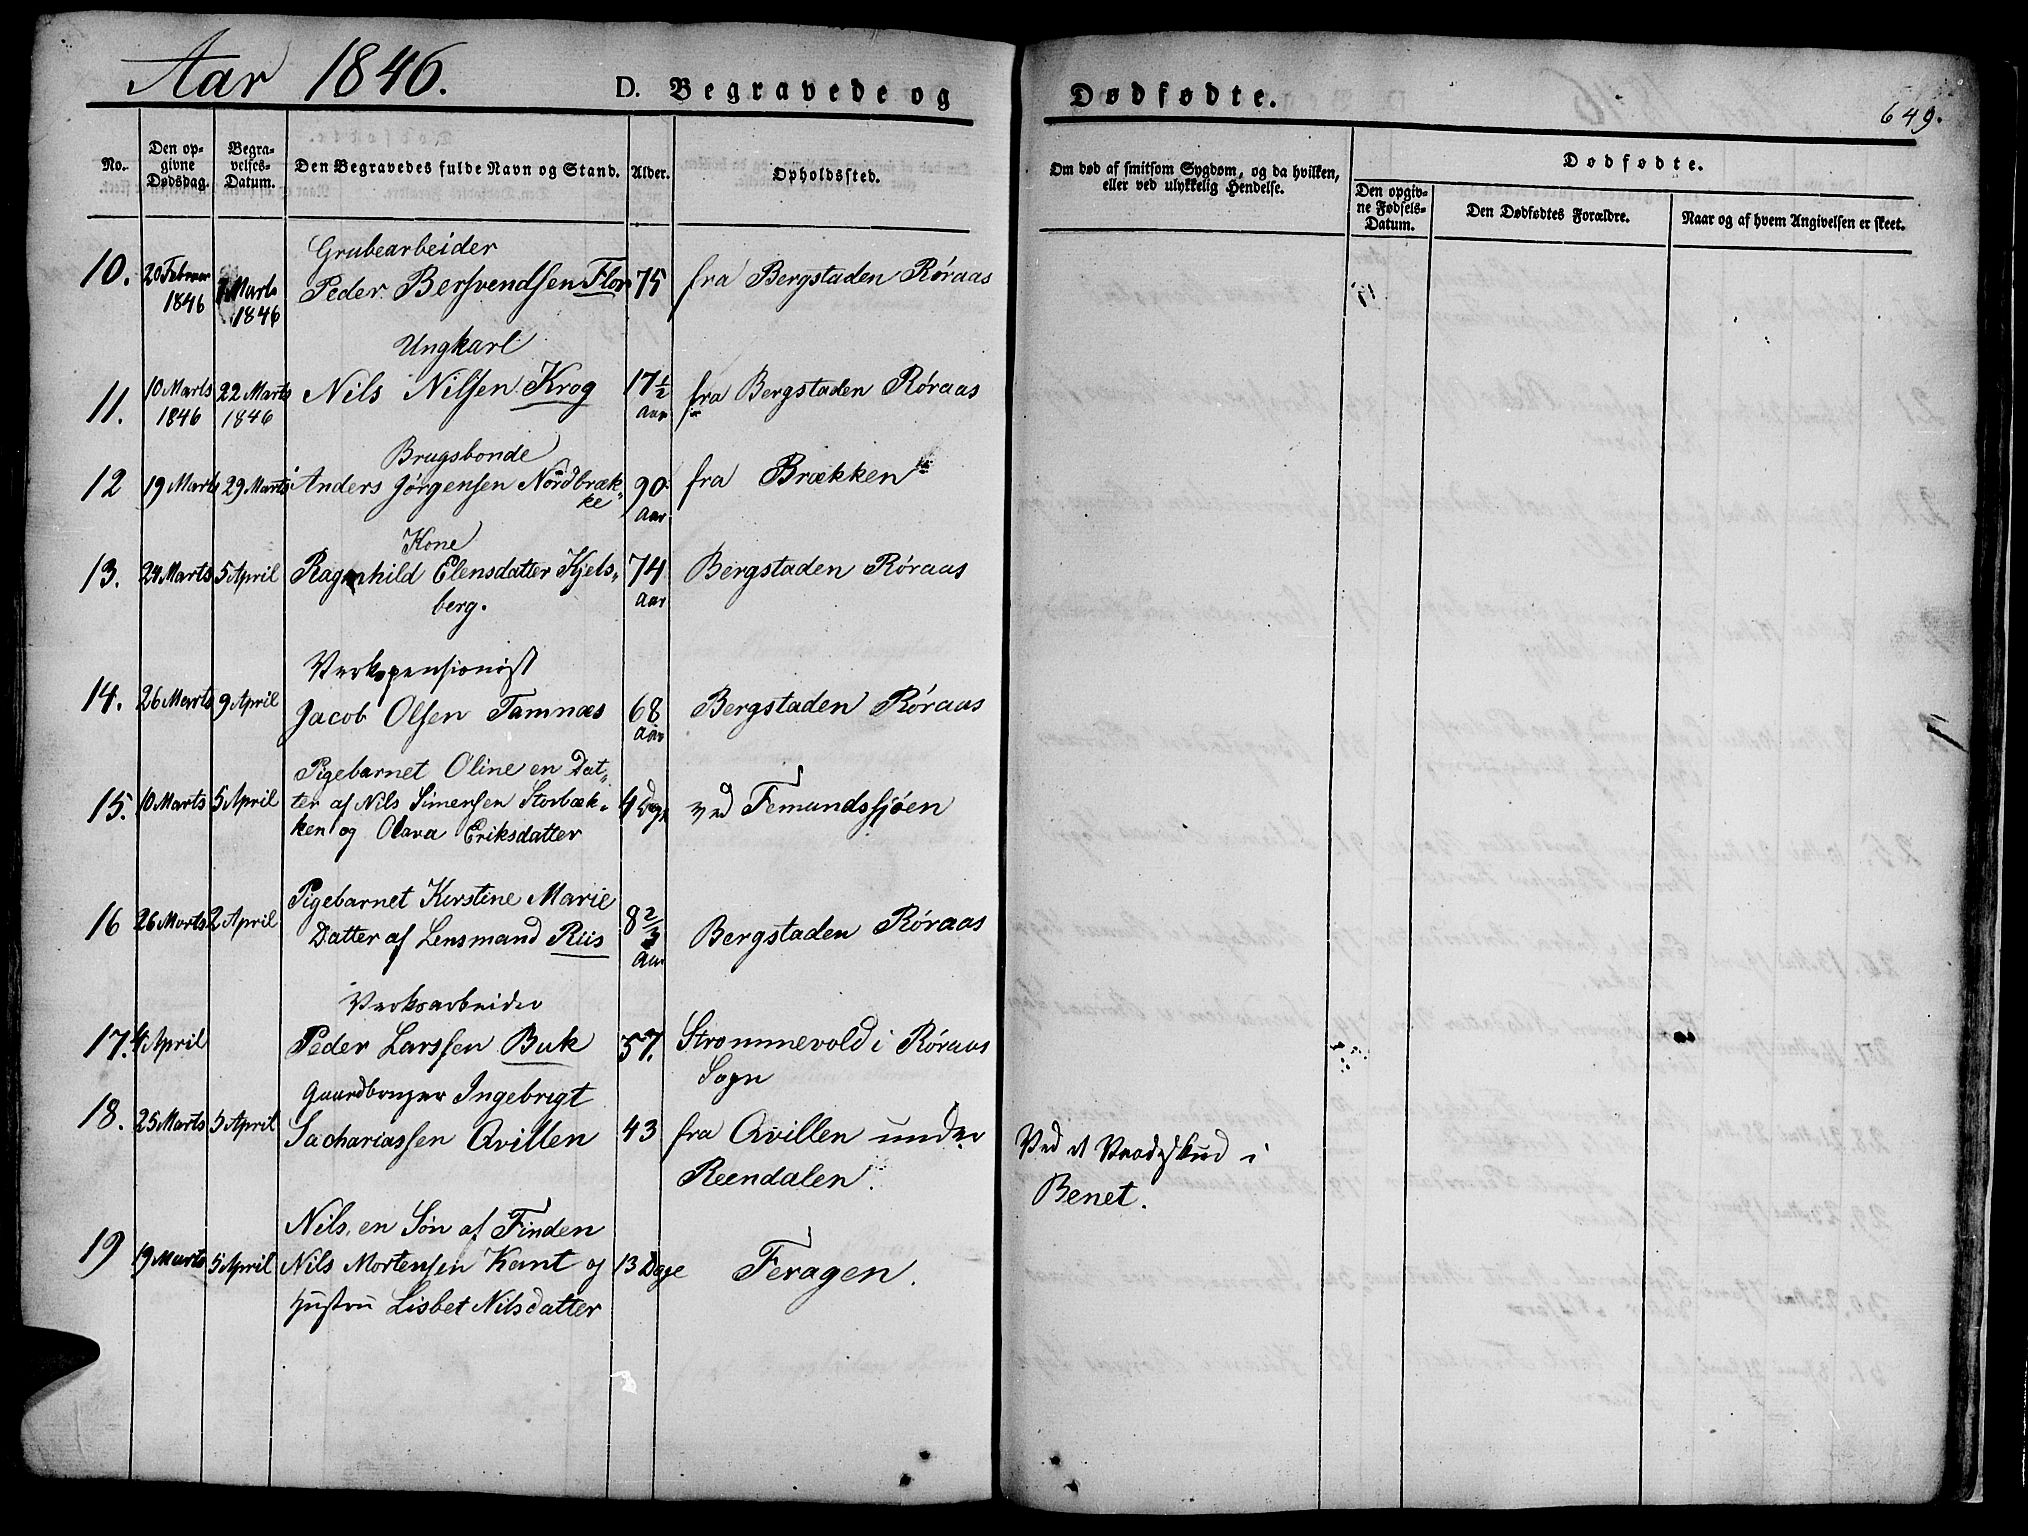 Aar 1846.
D. Begravede og Dødfødte.
649.
No.
Den op-
givne
Dødsdag.
Begra-
velses-
Datum.
Den Begravedes fulde Navn og Stand.
Alder.
Opholdssted.
Om død af smitsom Sygdom, og da hvilken,
eller ved ulykkelig Hendelse.
Dødfødte.
Den opgiv-
ne Fødsels-
Datum.
Den Dødfødtes Forældre.
Naar og af hvem Angivelsen er skeet.
Grubearbeider
10. 20 Februar 1846 Marts 1846 Peder Bersvendsen Flor 75 fra Bergstaden Røraas
Ungkarl
11. 10 Marts 1846 22 Marts 1846 Nils Nilsen Krog 17 1/2 Aar fra Bergstaden Røraas
Brugsbonde
12 19 Marts 29 Marts Anders Jørgensen Nordbræk- 90 Aar fra Brækken
ke
Kone
13. 24 Marts 5 April Ragnhild Elensdatter Kjels- 74 Aar Bergstaden Røraas
berg.
Verkspensionist
14. 26 Marts 9 April Jacob Olsen Tamnæs 68 Aar Bergstaden Røraas
Pigebarnet Oline en Dat-
15. 10 Marts 5 April ter af Nils Simensen Storbæk- 4 Dage ved Femundssjøen
ken og Olava Eriksdatter
Pigebarnet Kirstine Marie
16 26 Marts 2 April Datter af Lensmand Riis 8 2/3 Aar Bergstaden Røraas
Verksarbeider
17. 4 April Peder Larssen Buk 57. Strømmevold i Røraas
Sogn
Gaardbruger Ingebrigt
18. 25 Marts 5 April Sachariassen Qvillen 43 fra Qvillen under Ved et Vaadeskud i
Reendalen. Benet.
Nils, en Søn af Finden
19 19 Marts 5 April Nils Mortensen Kant og 13 Dage Feragen.
Hustru Lisbet Nilsdatter